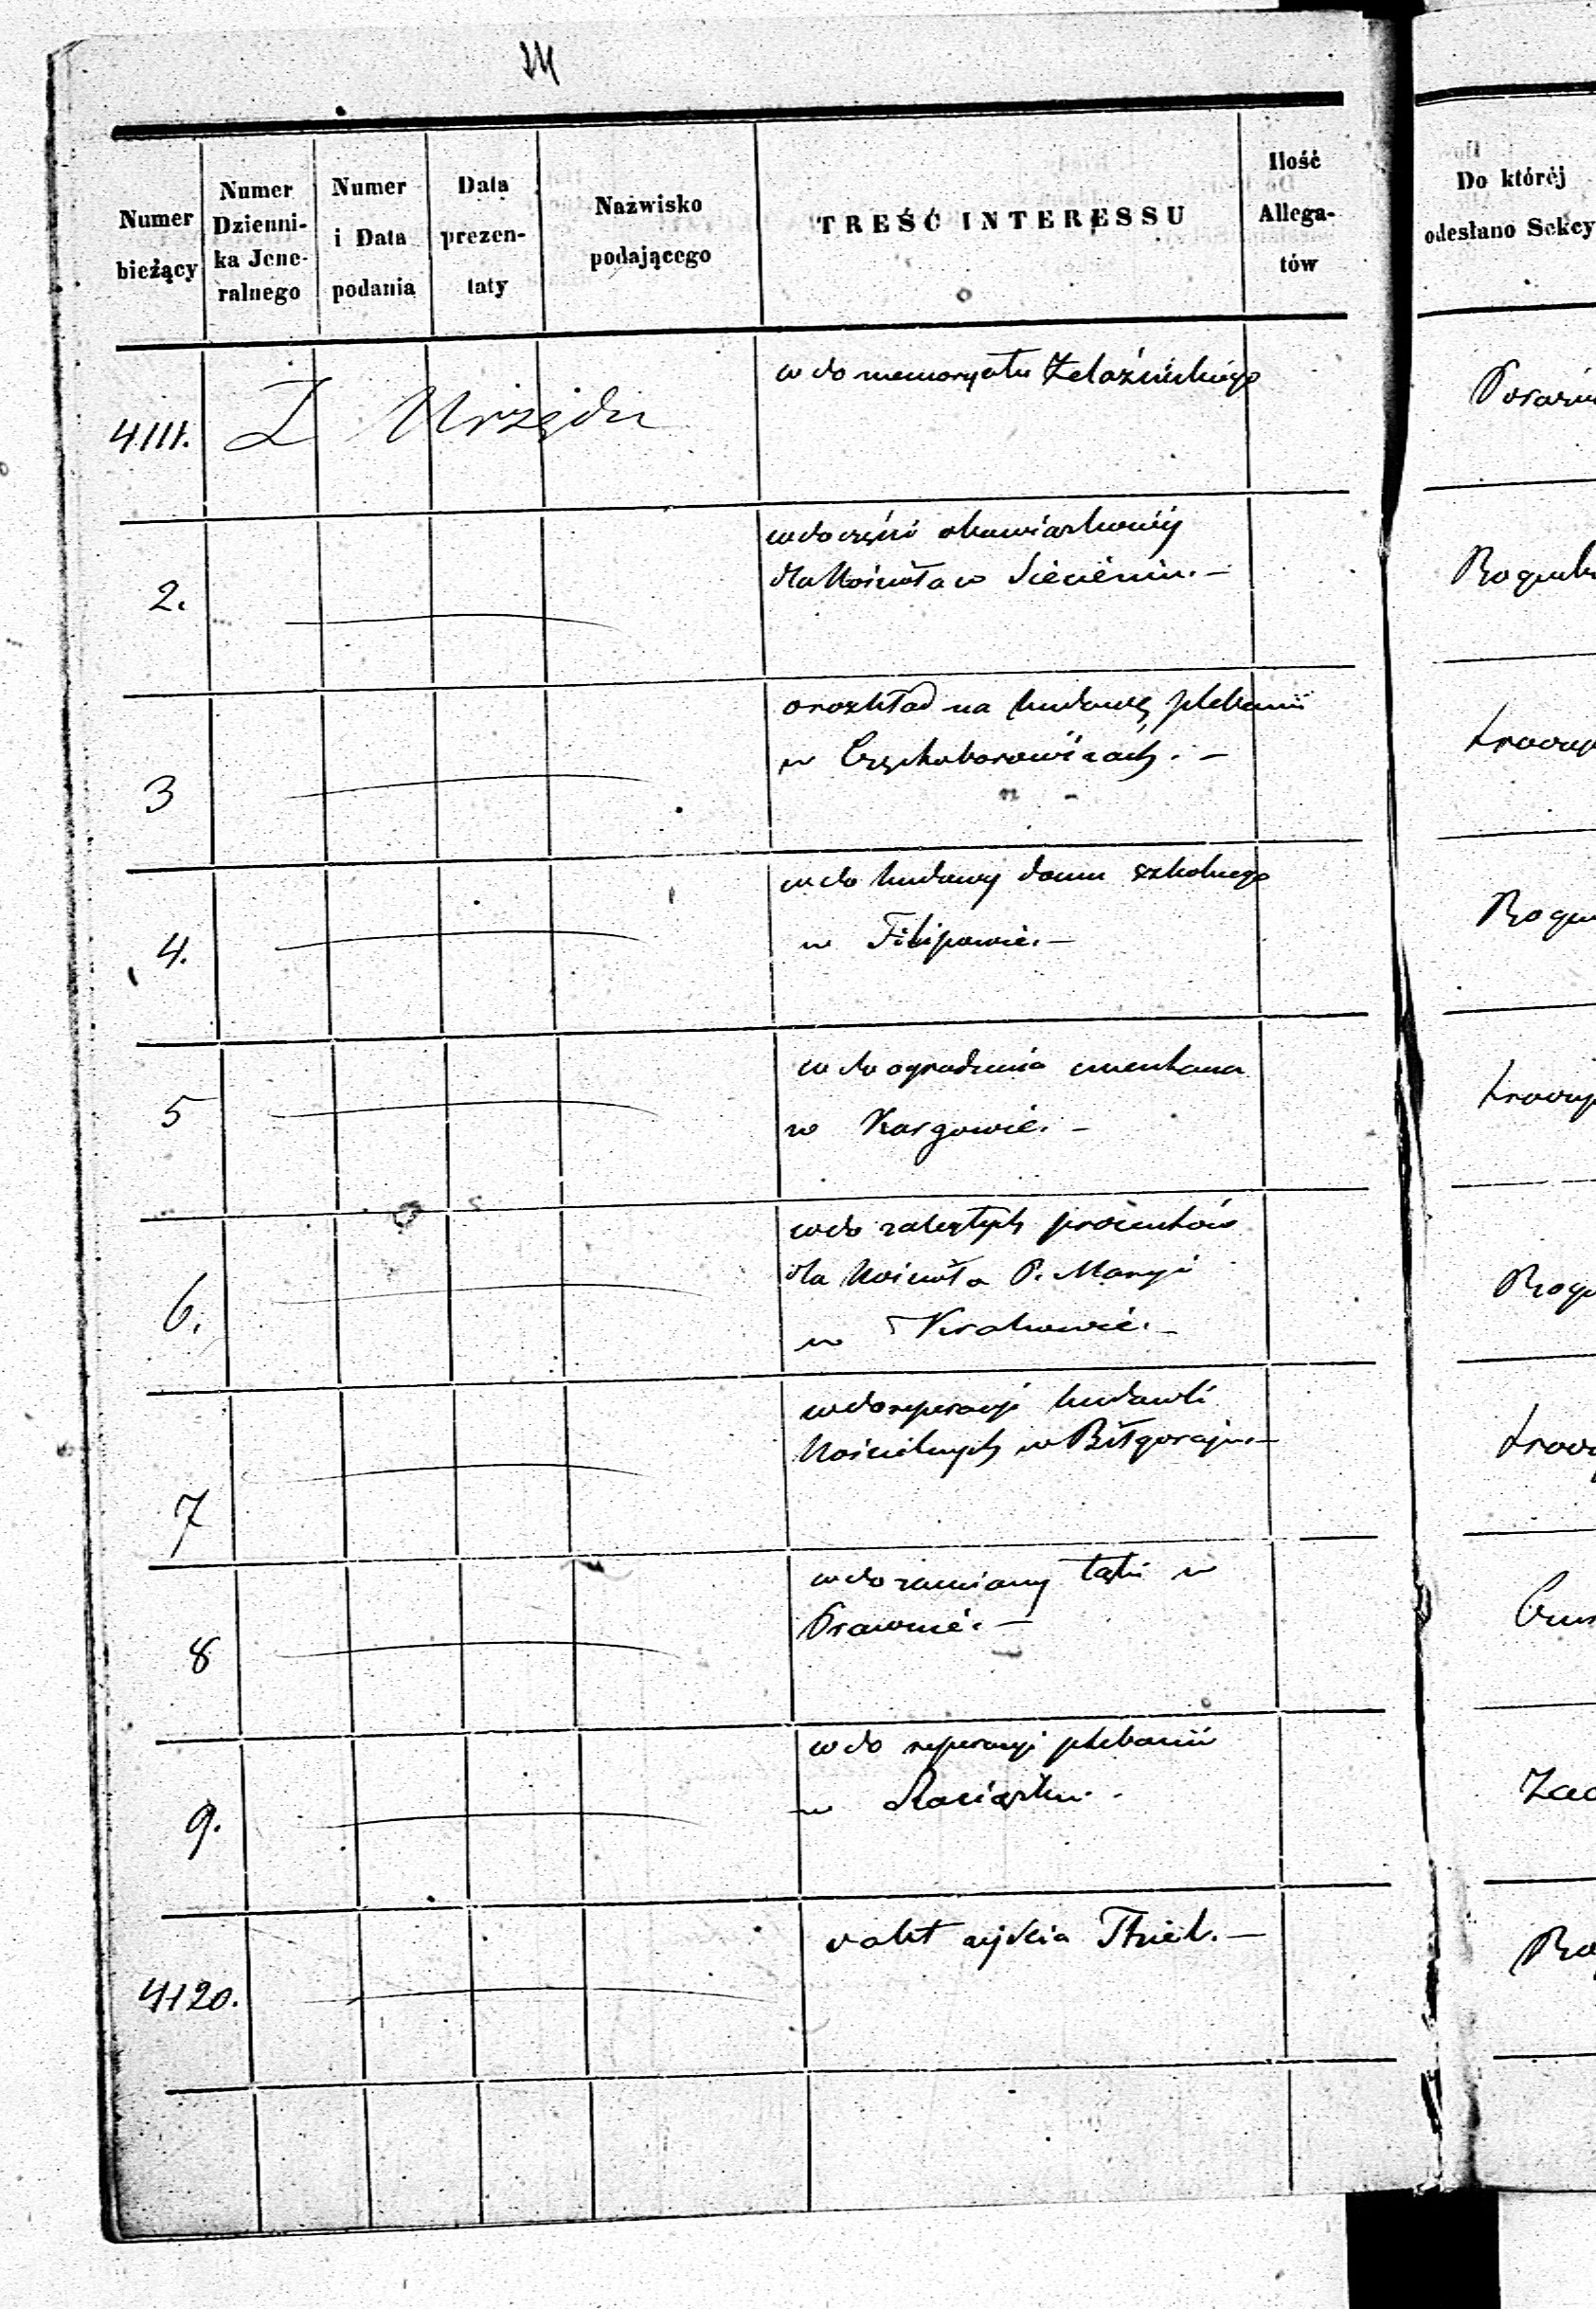 Numer bieżący
Numer Dzienni- ka Jene- ralnego
Numer i Data podania
Data prezen- taty
Nazwisko podającego
TREŚĆ INTERESSU
Ilość Allega- tów
Do któréj odesłano Sekcy
4111. Z Urzędu
w do memoryału Żelaźnickiego
2.
w do części obowiązkowéj
dla Kościoła w Siecieniu. —
3
o rozkład na budowę plebanii
w Częstoborowicach. —
4.
w do budowy domu szkolnego
w Filipowie. —
5
w do ogrodzenia cmentarza
w Kargowie. —
6.
w do zaległych procentów
dla Kościoła P. Maryi
w Krakowie. —
7
w do reperacyi budowli
Kościelnych w Biłgoraju. —
8
w do zamiany łąki w
9.
w do reperacyi plebanii
w Raciążku.
4120.
o akt zejścia Thiel. —